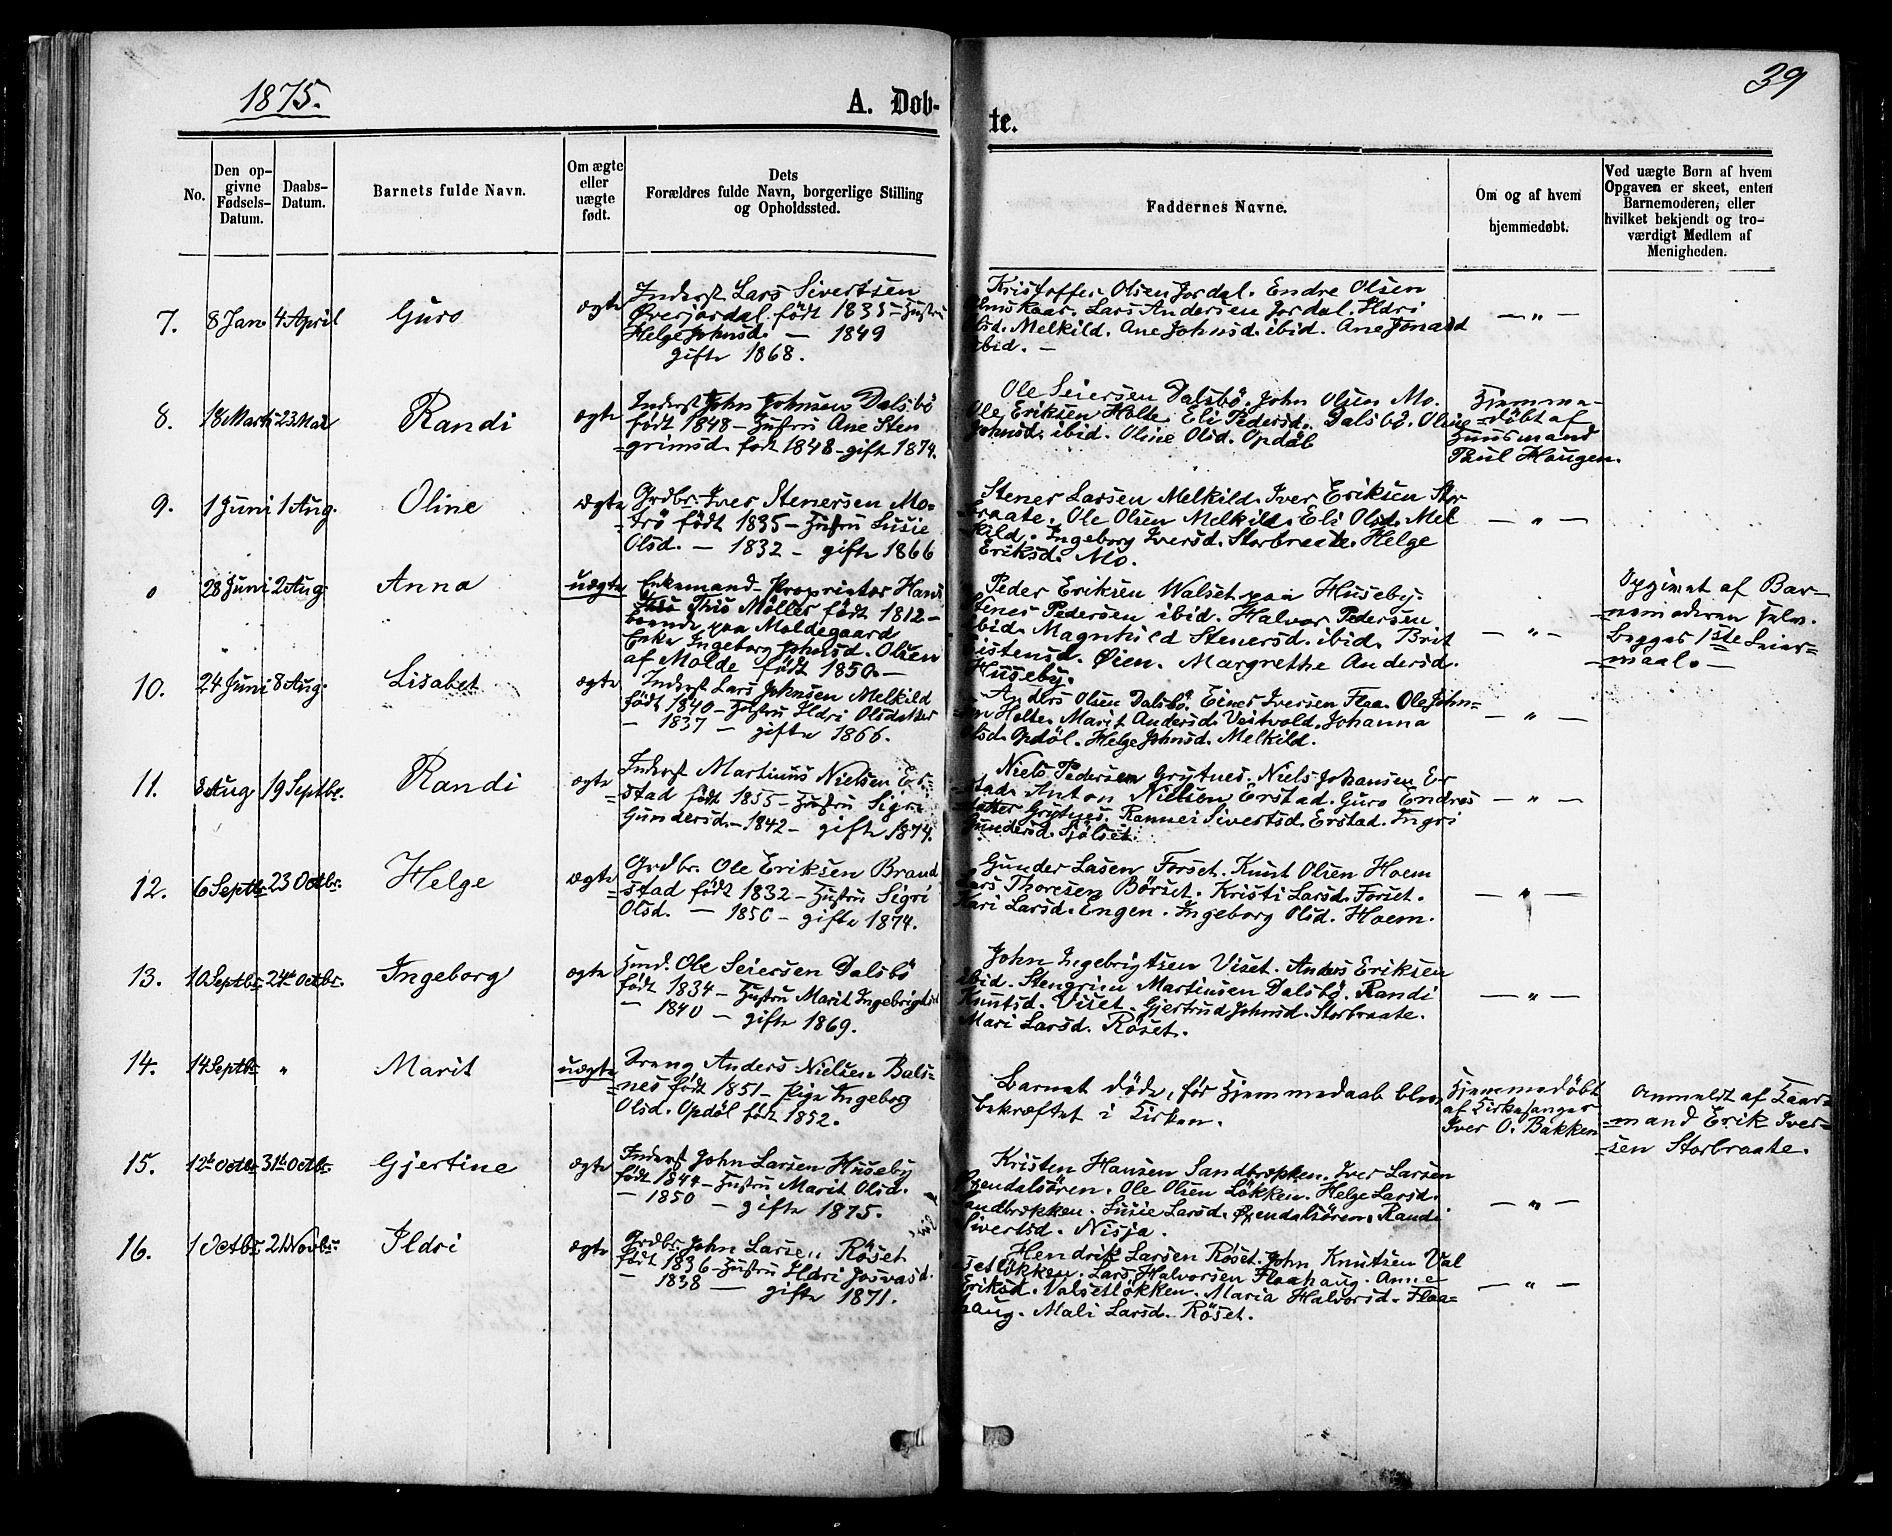 1875.
A. Døb-
te.
39
No.
Den op-
givne
Fødsels-
Datum.
Daabs-
Datum.
Barnets fulde Navn.
Om ægte
eller
uægte
født.
Dets
Forældres fulde Navn, borgerlige Stilling
og Opholdssted.
Faddernes Navne.
Om og af hvem
hjemmedøbt.
Ved uægte Børn af hvem
Opgaven er skeet, enten
Barnemoderen, eller
hvilket bekjendt og tro-
værdigt Medlem af
Menigheden.
7. 8 Jan 4 April Guro ægte
Inderst Lars Sivertsen
Øverjordal født 1835 - Hustru
Helge Johnsd. — 1849
gifte 1868.
Kristoffer Olsen Jordal. Endre Olsen
Lars Andersen Jordal. Ildri
Olsd. Melkild. Ane Johnsd. ibid. Ane Jonasd
ibid. —
— " —
8. 18 Marts 23 Mai Randi ægte
Inderst John Johnsen Dalsbö
født 1848 - Hustru Ane Sten
=grimsd. født 1848 - gifte 1874.
Ole Seiersen Dalsbö. John Olsen Mo.
Ole Eriksen Holte. Eli Pedersd. Dalsbö. Oline
Johnsd. ibid. Oline Olsd. Opdøl
Hjemme-
=døbt af
Huusmand
Poul Haugen.
9. 1 Juni 1 Aug. Oline ægte
Grdbr. Iver Stenersen Mo-
=trö født 1835 - Hustru Lusie
Olsd. — 1832 - gifte 1866
Stener Larsen Melkild. Iver Eriksen Stor
=braate. Ole Olsen Melkild. Eli Olsd. Mel
kild. Ingeborg Iversd. Storbraate. Helge
Eriksd. Mo.
— " —
0 28 Juni 2 Aug. Anna uægte
Enkemand Proprietær Hans
Thiis Møller født 1812 -
boende paa Moldegaard
Enke Ingeborg Johnsd. Olsen
af Molde født 1850. —
Peder Eriksen Walset paa Huseby.
Stener Pedersen ibid. Halvor Pedersen
ibid. Magnhild Stenersd. ibid. Brit
Kristensd. Øien. Margrethe Andersd.
Huseby.
— " —
Opgivet af Bar-
nemoderen selv.
Begges 1ste Leier-
=maal. —
10. 24 Juni 8 Aug. Lisabet ægte
Inderst Lars Johnsen Melkild
født 1840 - Hustru Ildri Olsdatter
— 1837 — gifte 1866.
Anders Olsen Dalsbö. Einer Iversen Flaa. Ole John=
sen Holte. Marit Andersd. Veitvold. Johanna
Olsd. Opdøl. Helge Johnsd. Melkild.
— " —
11. 8 Aug 19 Septbr. Randi ægte
Inderst Martinus Nielsen Er=
=stad født 1855 - Hustru Sigri
Gundersd. - 1842 - gifte 1874.
Niels Pedersen Grytnes. Niels Johansen Er
=stad. Anton Nielsen Erstad. Guro Endres
datter Grytnes. Rannei Sivertsd. Erstad. Ingri
Gundersd. Tjölset.
— " —
12. 6 Septbr 23 Octbr. Helge ægte
Grdbr. Ole Eriksen Brand
=stad født 1832 - Hustru Sigri
Olsd. — 1850 - gifte 1874.
Gunder Lasen Forset. Knut Olsen Hoem
Lars Thoresen Börset. Kristi Larsd. Forset.
Kari Larsd. Engen. Ingeborg Olsd. Hoem.
— " —
13. 10 Septbr 24de Octbr. Ingeborg ægte
Ind. Ole Seiersen Dalsbö
født 1834 - Hustru Marit Ingebrigtsd
— 1840 — gifte 1869.
John Ingebrigtsen Viset. Anders Eriksen
ibid. Stengrim Martinsen Dalsbö. Randi
Knutsd. Viset. Gjertrud Johnsd. Storbraate.
Mari Larsd. Röset.
— " —
14. 14 Septbr " Marit uægte
Dreng Anders Nielsen Bals=
=nes født 1851 - Pige Ingeborg
Olsd. Opdøl født 1852.
Barnet døde, før Hjemmedaab blev
bekræftet i Kirken.
Hjemmedøbt
af Kirkesanger
Iver O. Bakken
Anmeldt af Kaar-
=mand Erik Iver-
=sen Storbraate.
15. 12te Octbr 31te Octbr. Gjertine ægte
Inderst John Larsen Huseby
født 1844 - Hustru Marit Olsd.
— 1850 — gifte 1875.
Kristen Hansen Sandbrækken. Iver Larsen
Øxendalsören. Ole Olsen Løkken. Helge Larsd.
Sandbrækken. Lusie Larsd. Øxendalsören. Randi
Sivertsd. Nisja.
— " —
16. 1 Octbr 21 Novbr. Ildri ægte
Grdbr. John Larsen Röset
født 1836 - Hustru Ildri Josvasd.
— 1838 — gifte 1871.
Hendrik Larsen Röset. John Knutsen Val
setløkken. Lars Halvorsen Flaahaug. Anne
Eriksd. Valsetløkken. Maria Halvorsd. Flaa=
haug. Mali Larsd. Röset.
— " —